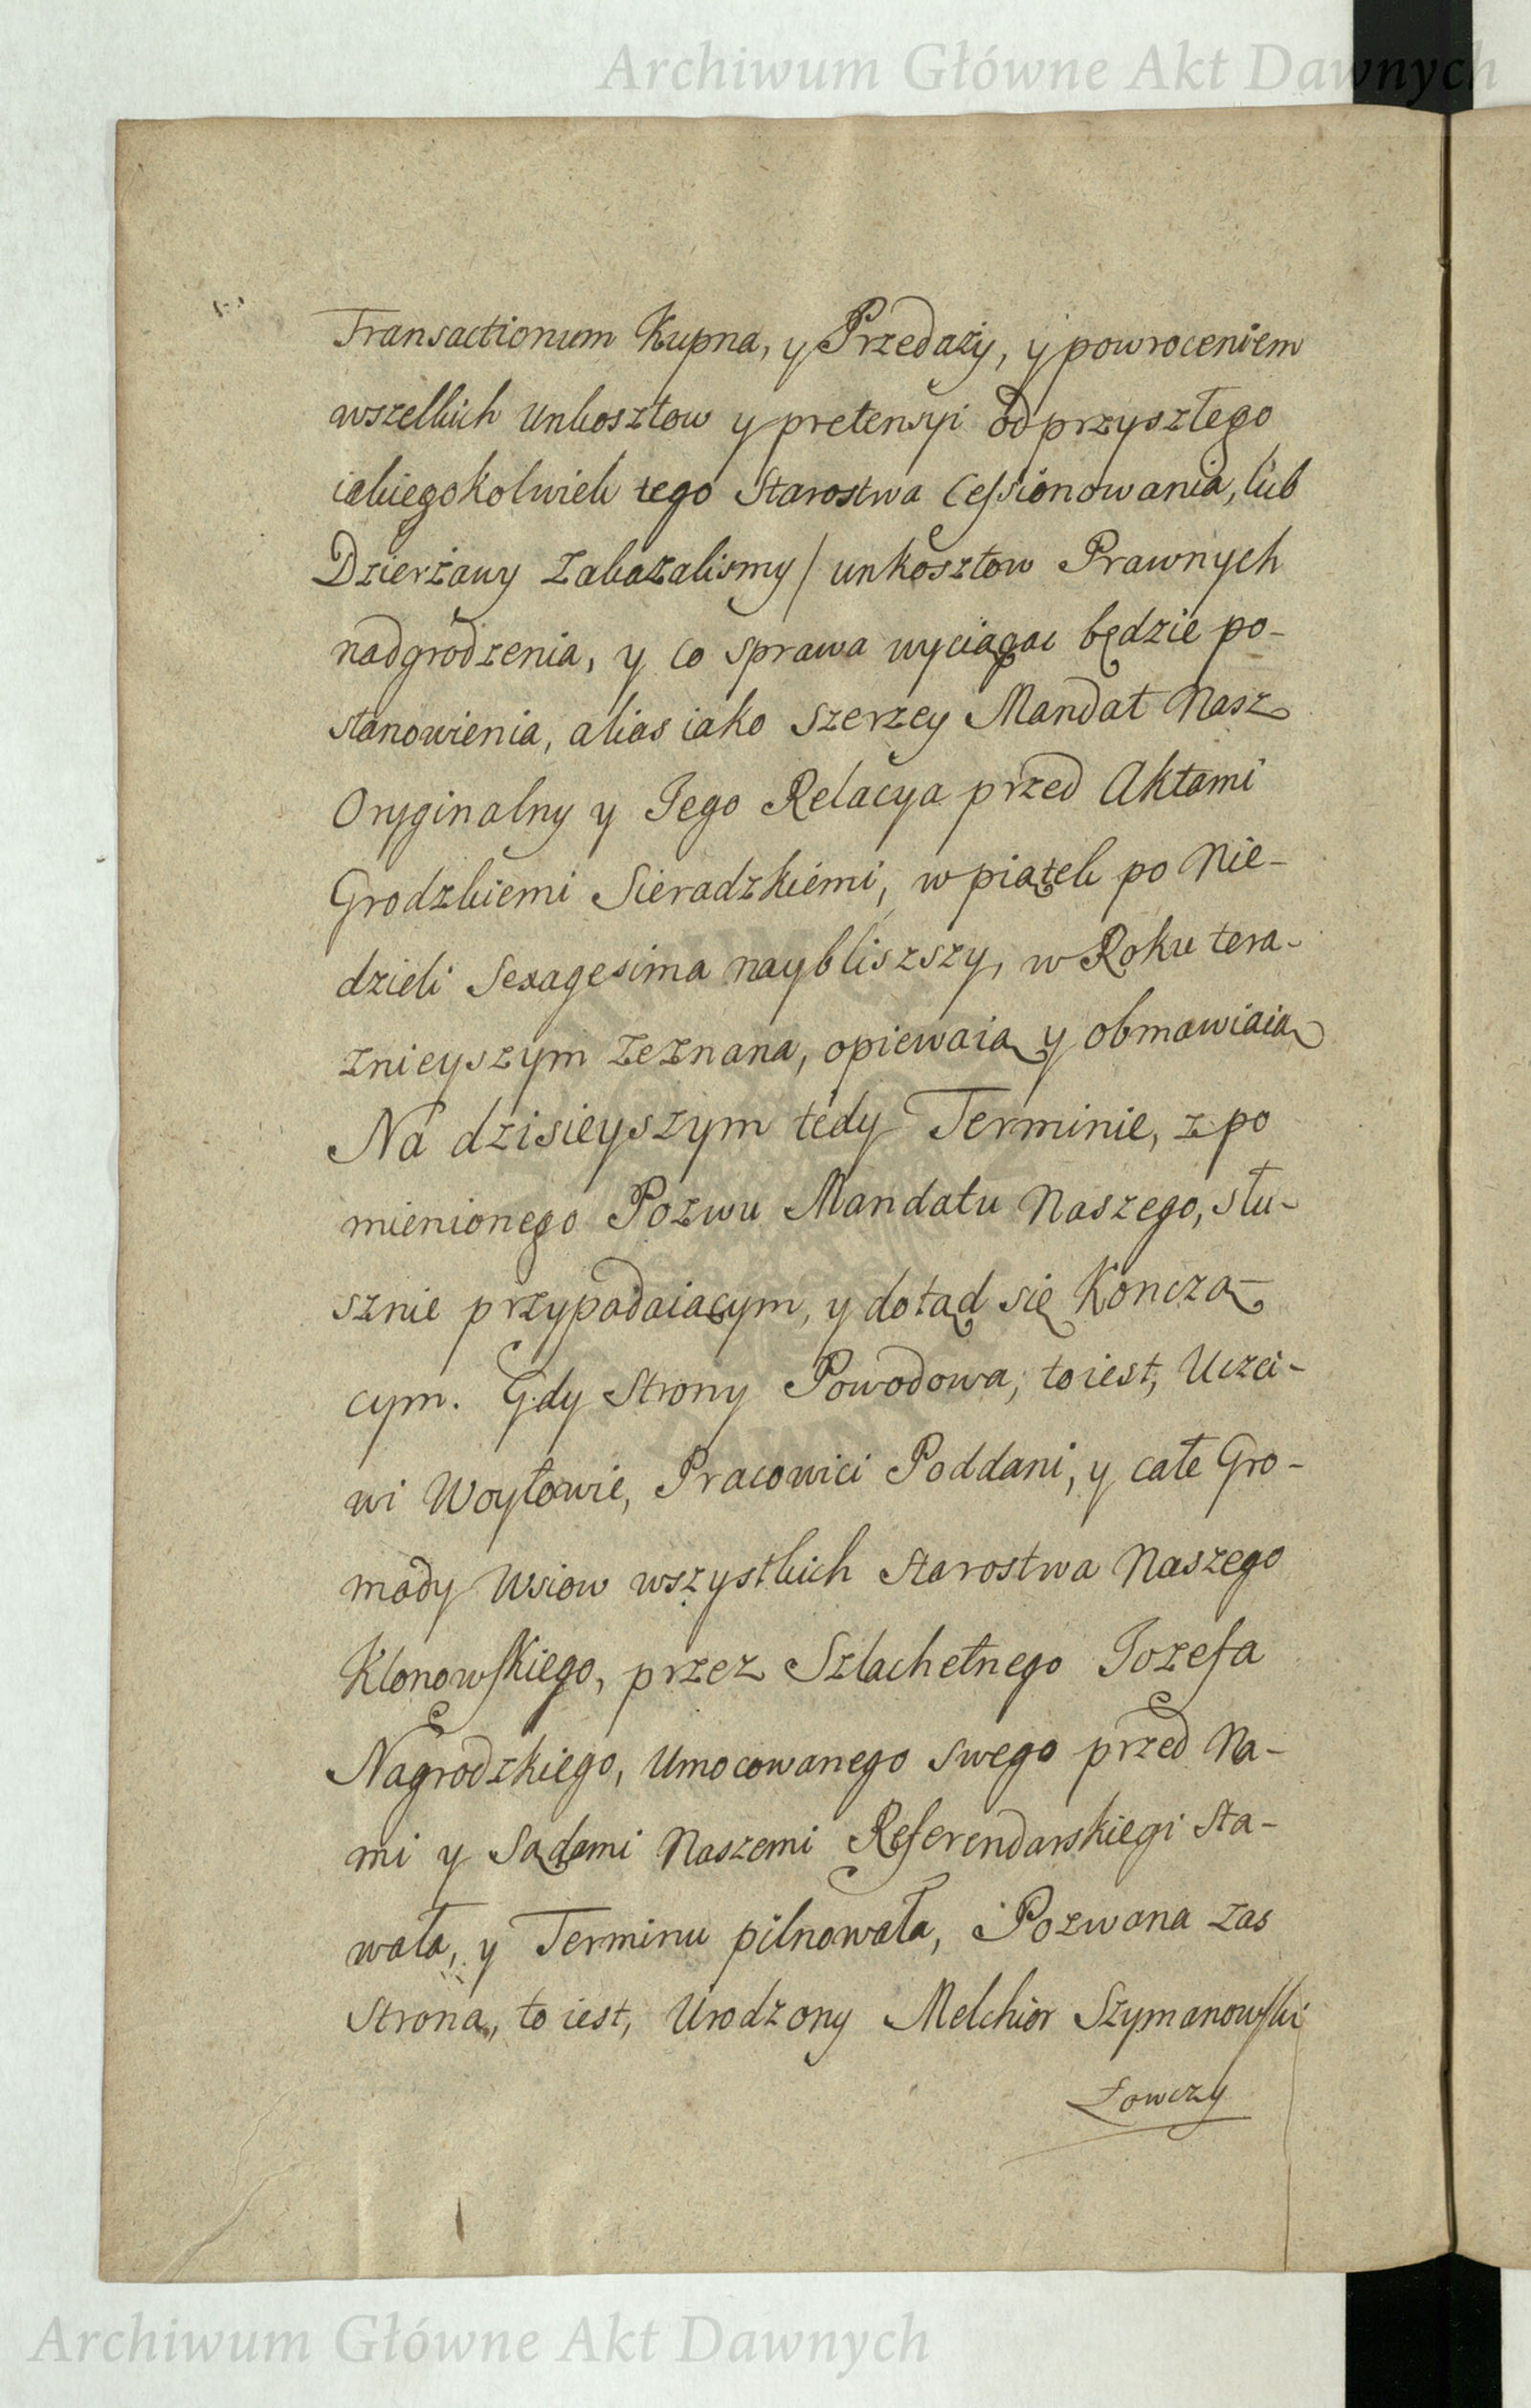 Archiwum Główne Akt Dawnych
Transactionum Kupna, y Przedaży, y powroceniem
wszelkich Unkosztow y pretensyi od przyszłego
iakiegokolwiek tego Starostwa Cessionowania, lub
Dzierżawy Zakazalismy / unkosztow Prawnych
nadgrodzenia, y co sprawa wyciągac będzie po-
stanowienia, alias iako szerzey Mandat Nasz
Oryginalny y Jego Relacya przed Aktami
Grodzkiemi Sieradzkiemi, w piątek po Nie-
dzieli Sexagesima naybliszszy, w Roku tera-
znieyszym zeznana, opiewaią y obmawiaią
Na dzisieyszym tedy Terminie, z po
mienionego Pozwu Mandatu Naszego, słu-
sznie przypadaiącym, y dotąd się Kończą-
cym. Gdy Strony Powodowa, to iest, Uczci-
wi Woytowie, Pracowici Poddani, y całe Gro-
mady Wsiow wszystkich Starostwa Naszego
Klonowskiego, przez Szlachetnego Jozefa
Nagrodzkiego, Umocowanego swego przed Na-
mi y Sądami Naszemi Referendarskiegi sta-
wała, y Terminu pilnowała, Pozwana zas
Strona, to iest, Urodzony Melchior Szymanowski
Łowczy
Archiwum Główne Akt Dawnych